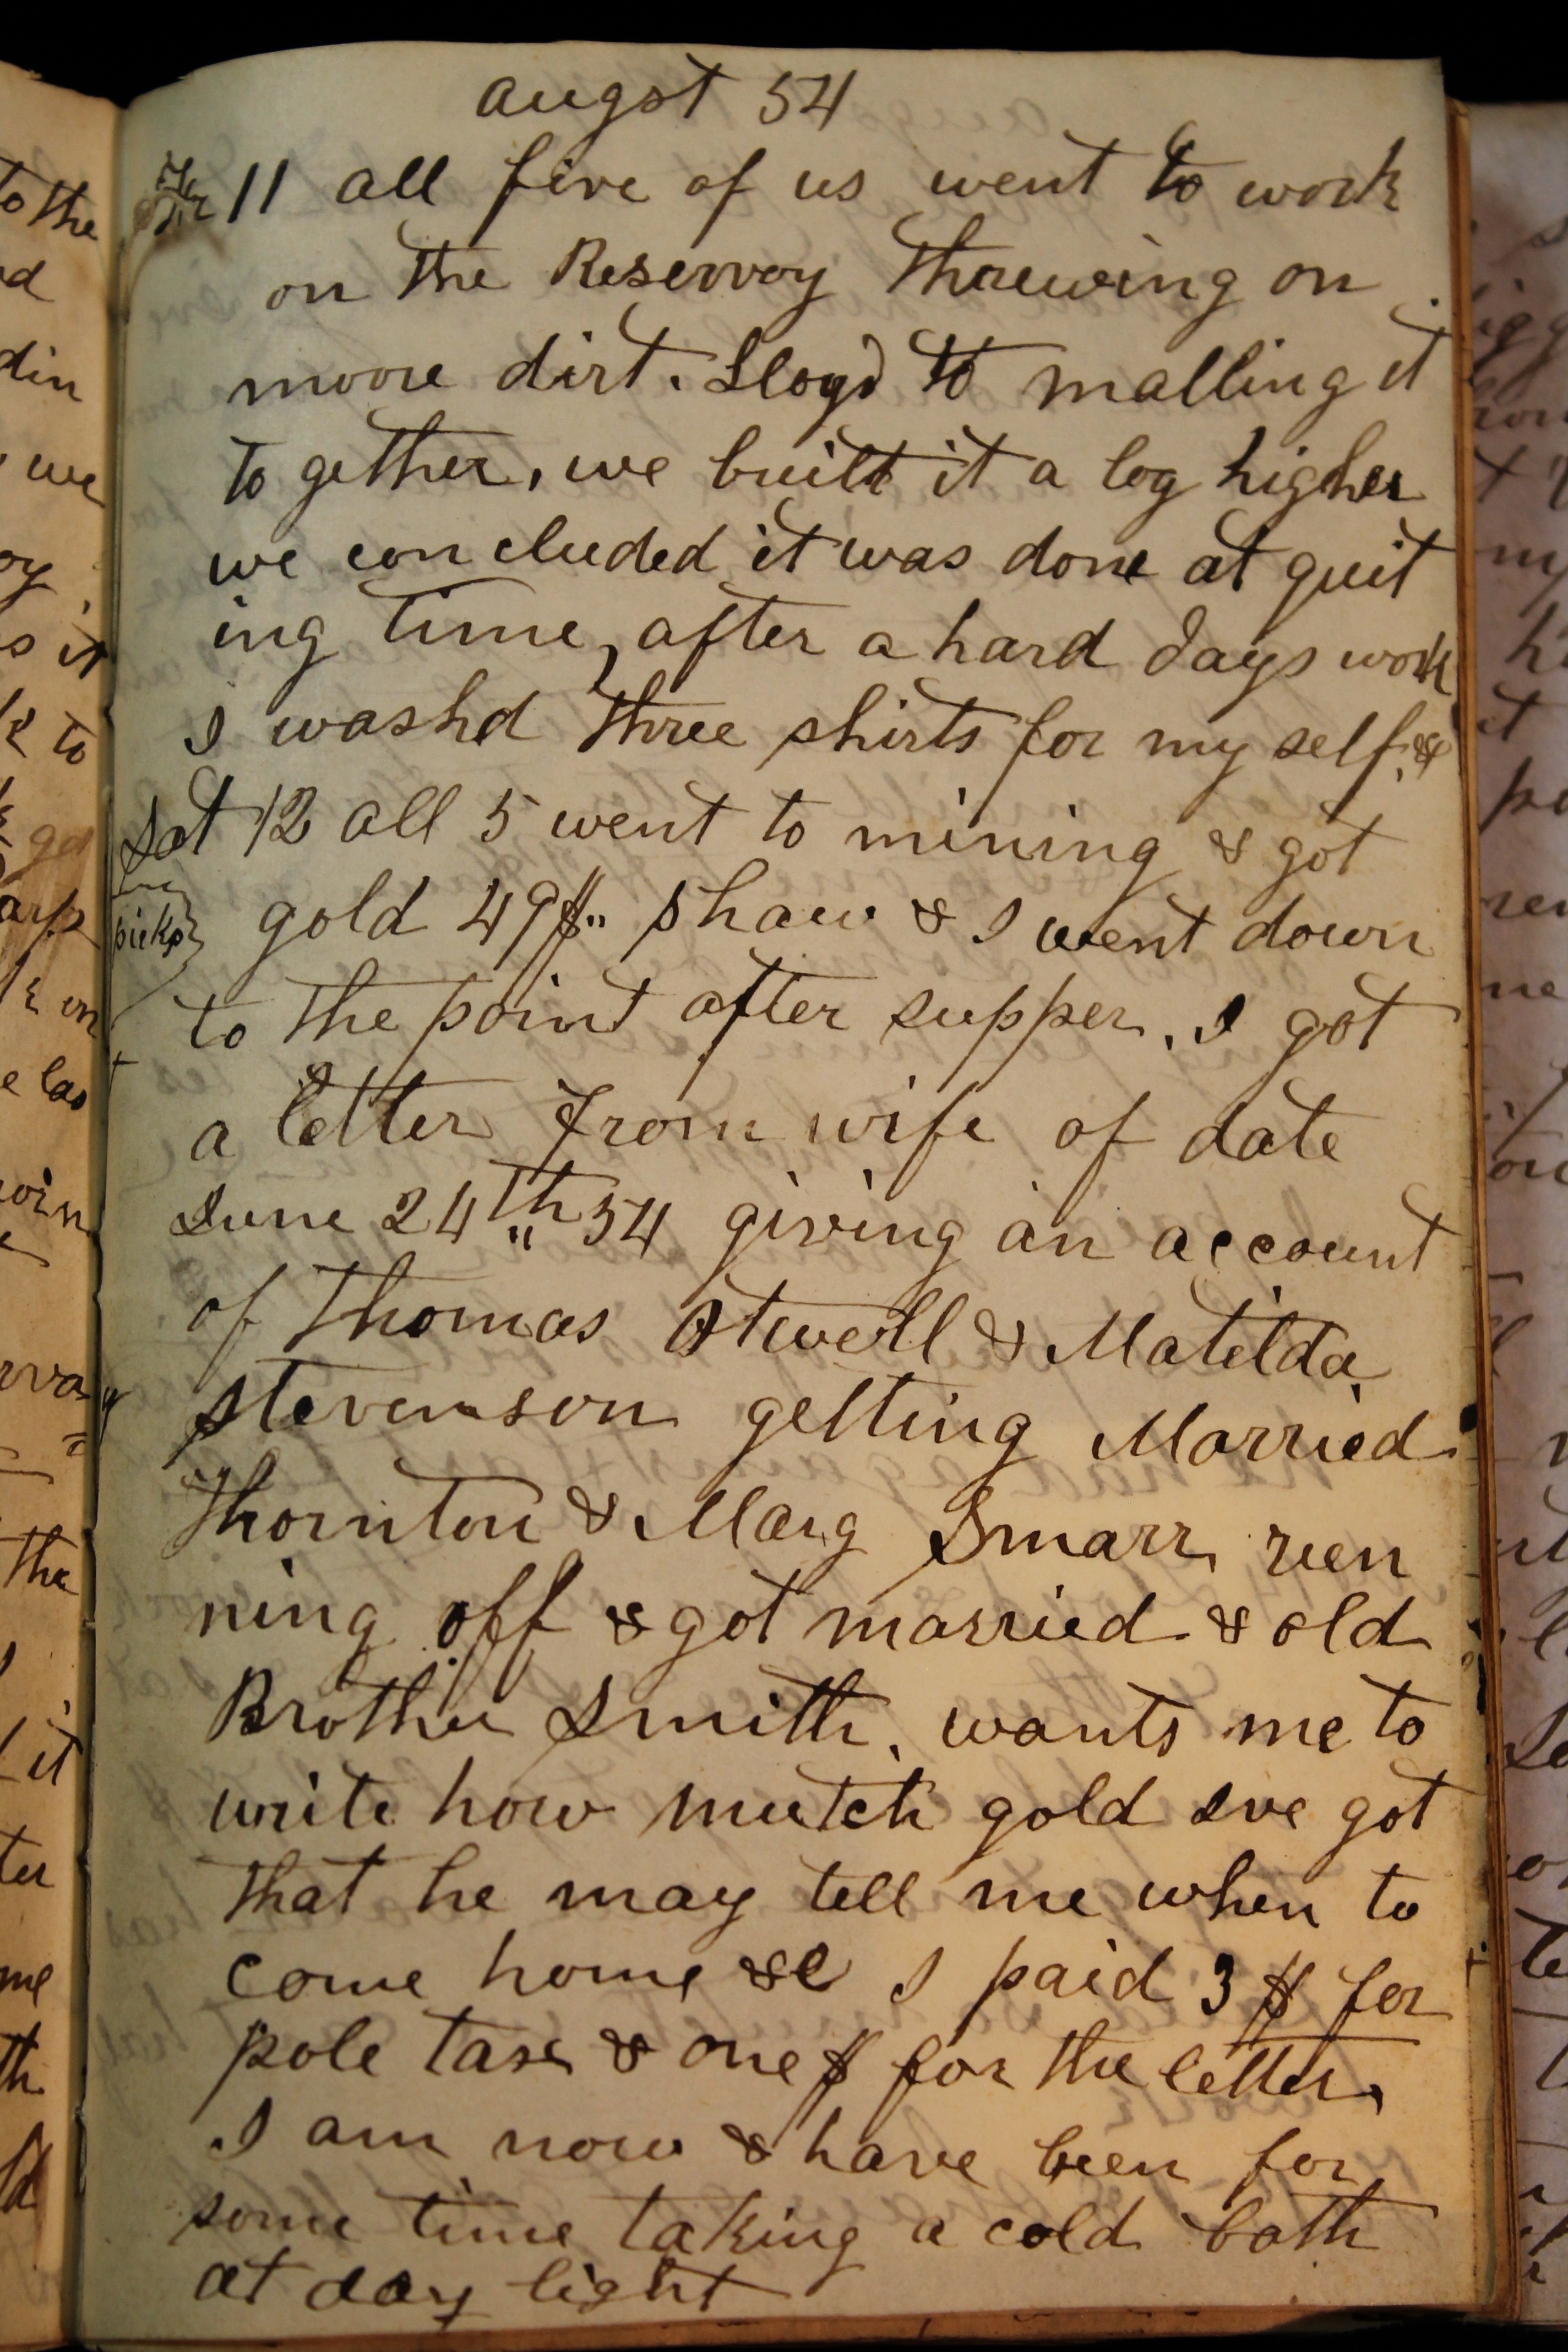 augst 54
Fri 11 all five of us went to work
on the Reservoy threwing on
moore dirt. Lloyd to malling it
to gether, we built it a log higher
we con cluded it was done at quit
ing time, after a hard days work
I washd three shirts for my self, &
Sat 12 all 5 went to mining & got
picks
gold 49$" Shaw & I went down
to the point after supper, I got
a letter from wife of date
June 24th" 54 giving an account
of Thomas Otwell & Matilda
Stevenson getting Married
Thornton & Marg Smarr run
ning off & got married & old
Brother Smith, wants me to
write how mutch gold Ive got
that he may tell me when to
come home &c I paid 3 $ for
pole tax & one $ for the letter,
I am now & have been for
some time taking a cold bath
at day light